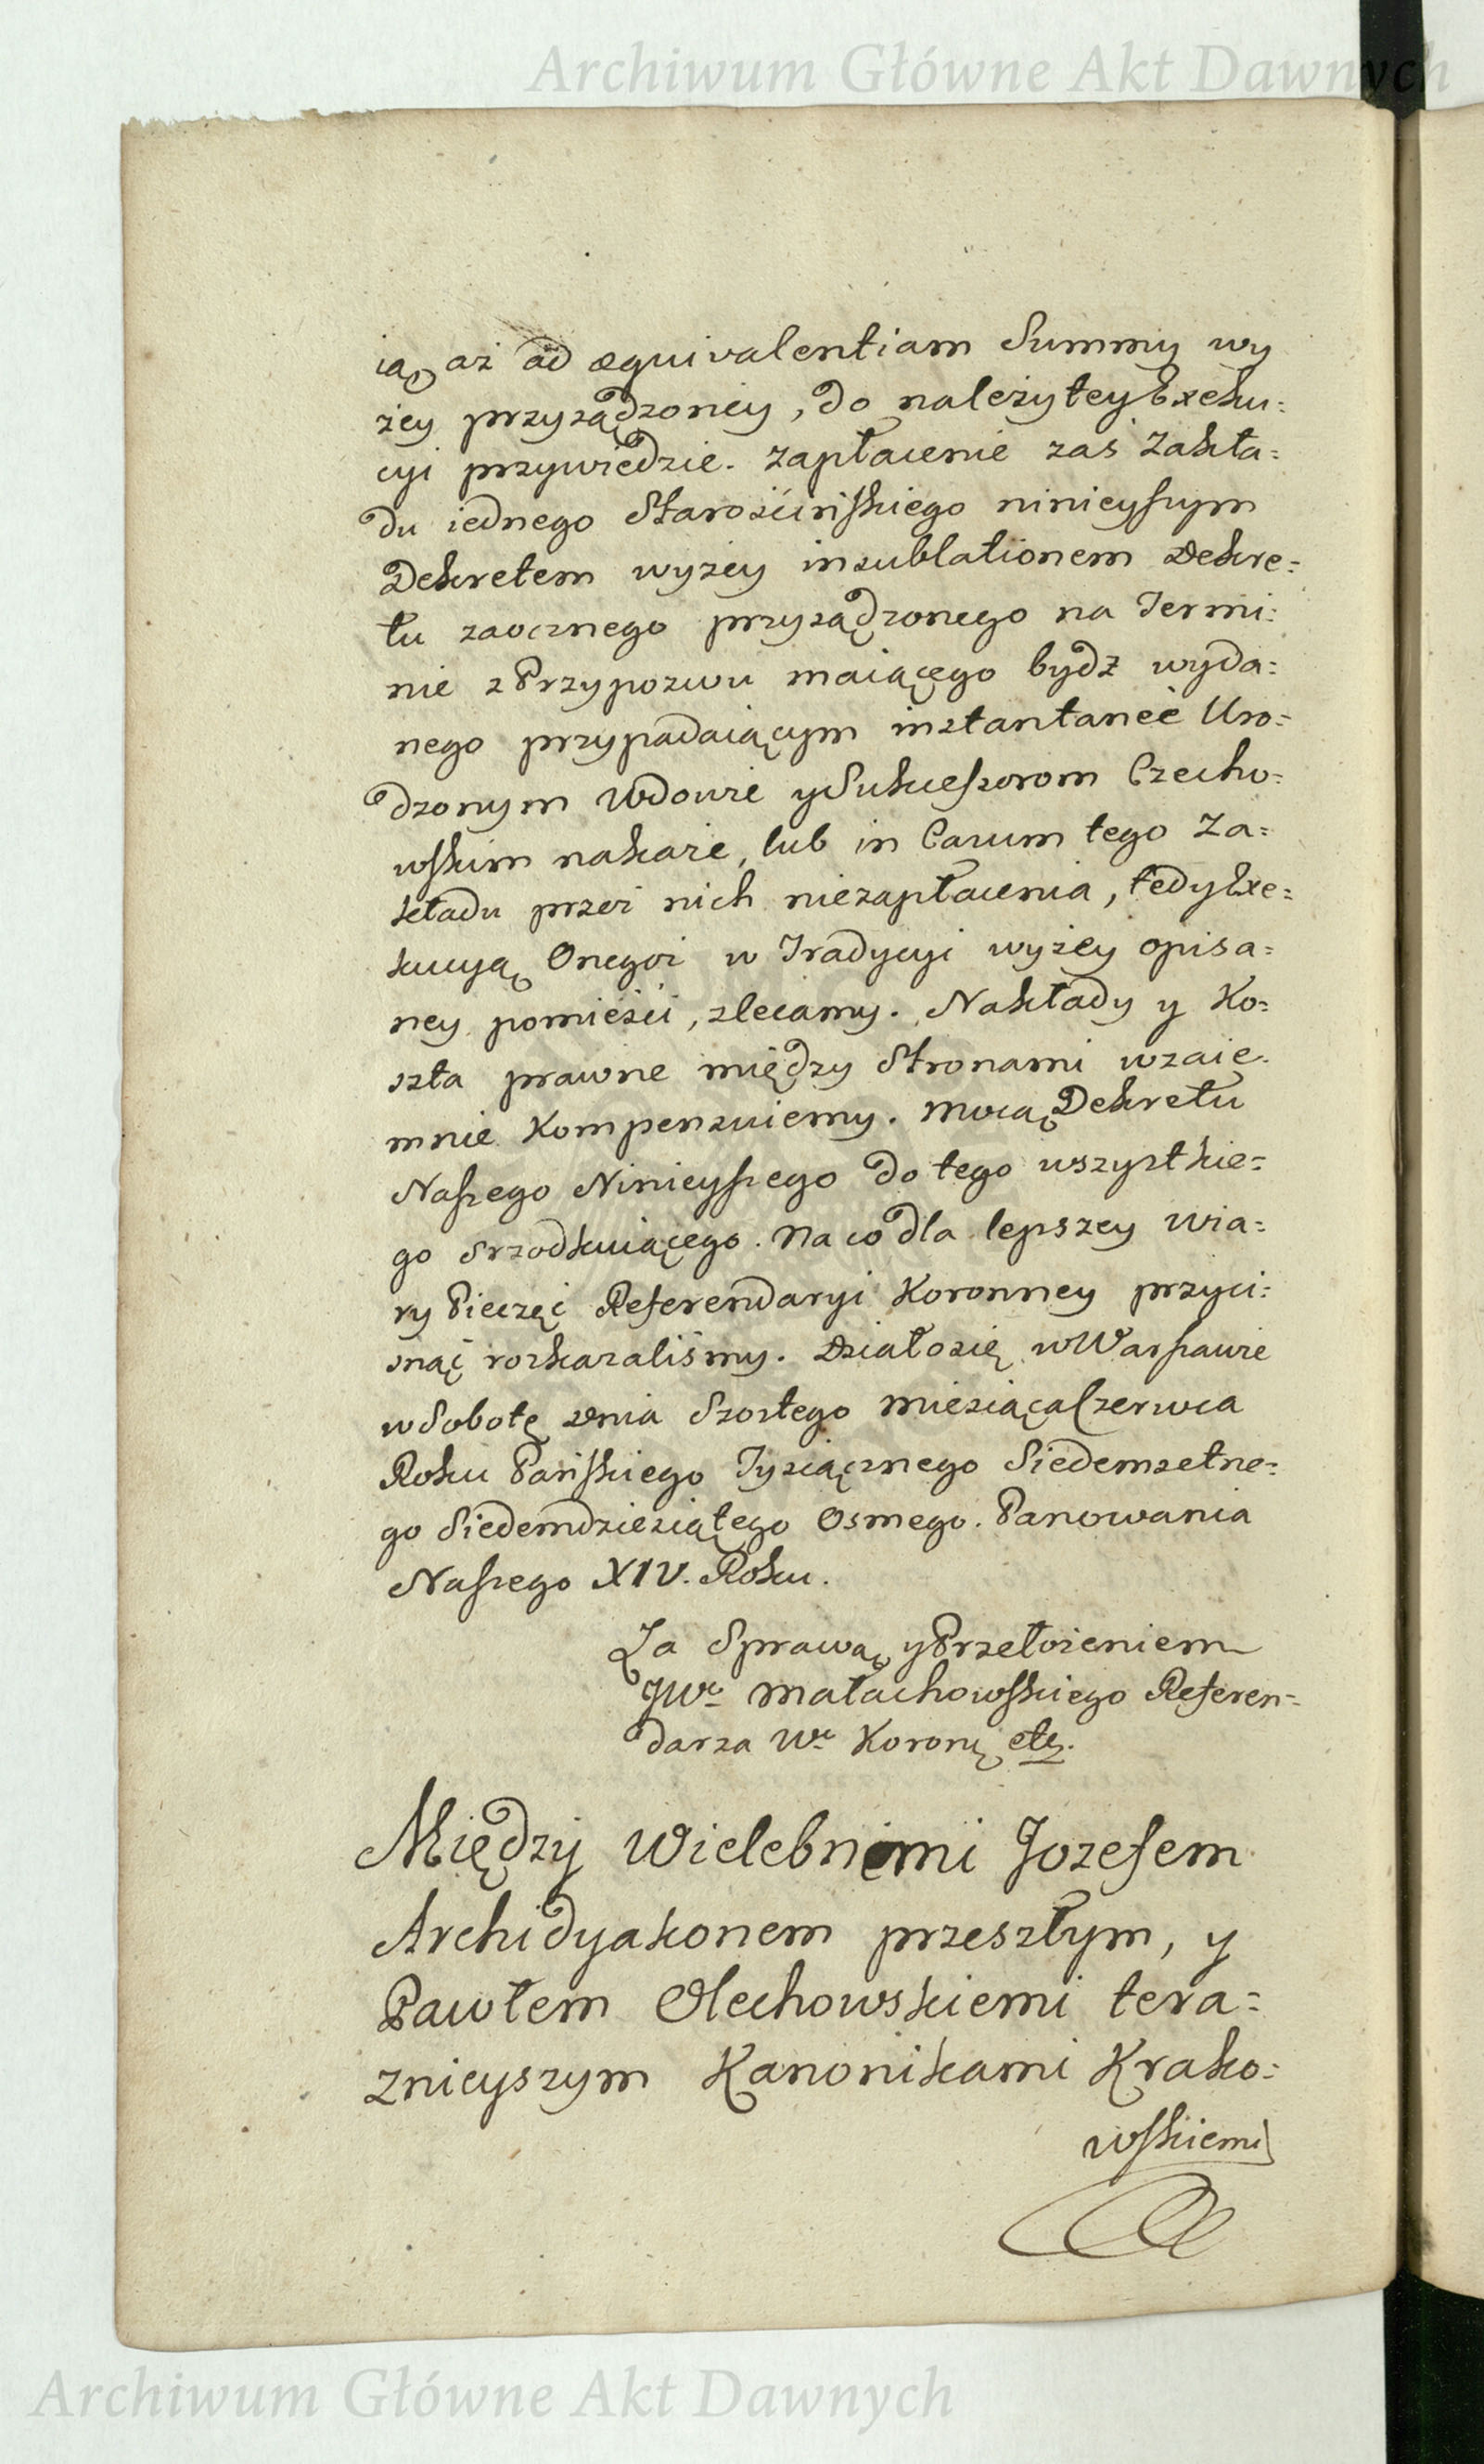 Archiwum Główne Akt Dawnych
ią aż ad æquivalentiam Summy wy
żey przysądzoney, do należytey Exeku=
cyi przywiedzie. Zapłacenie zaś Zakła=
du iednego Starościńskiego ninieyszym
Dekretem wyżey in sublationem Dekre=
tu zaocznego przysądzonego na Termi=
nie z Przypozwu maiącego bydź wyda=
nego przypadaiącym instantaneè Uro=
dzonym Wdowie y Sukcessorom Czecho=
wskim nakaże, lub in Casum tego Za=
kładu przez nich niezapłacenia, tedy Exe=
kucyą Onegoż w Tradycyi wyżey opisa=
ney pomieści, zlecamy. Nakłady y Ko=
szta prawne między Stronami wzaie=
mnie Kompensuiemy. Mocą Dekretu
Naszego Ninieyszego do tego wszystkie=
go srzodkuiącego. Na co dla lepszey wia=
ry Pieczęć Referendaryi Koronney przyci=
snąć rozkazaliśmy. Działo się w Warszawie
w Sobotę Dnia Szostego Miesiąca Czerwca
Roku Pańskiego Tysiącznego Siedemsetne=
go Siedemdziesiątego Osmego. Panowania
Naszego XIV. Roku.
Za Sprawą y Przełożeniem
JWo Małachowskiego Referen=
darza Wo Koronn etc.
Między Wielebnemi Jozefem
Archidyakonem przeszłym, y
Pawłem Olechowskiemi tera=
znieyszym Kanonikami Krako=
wskiemi
Archiwum Główne Akt Dawnych